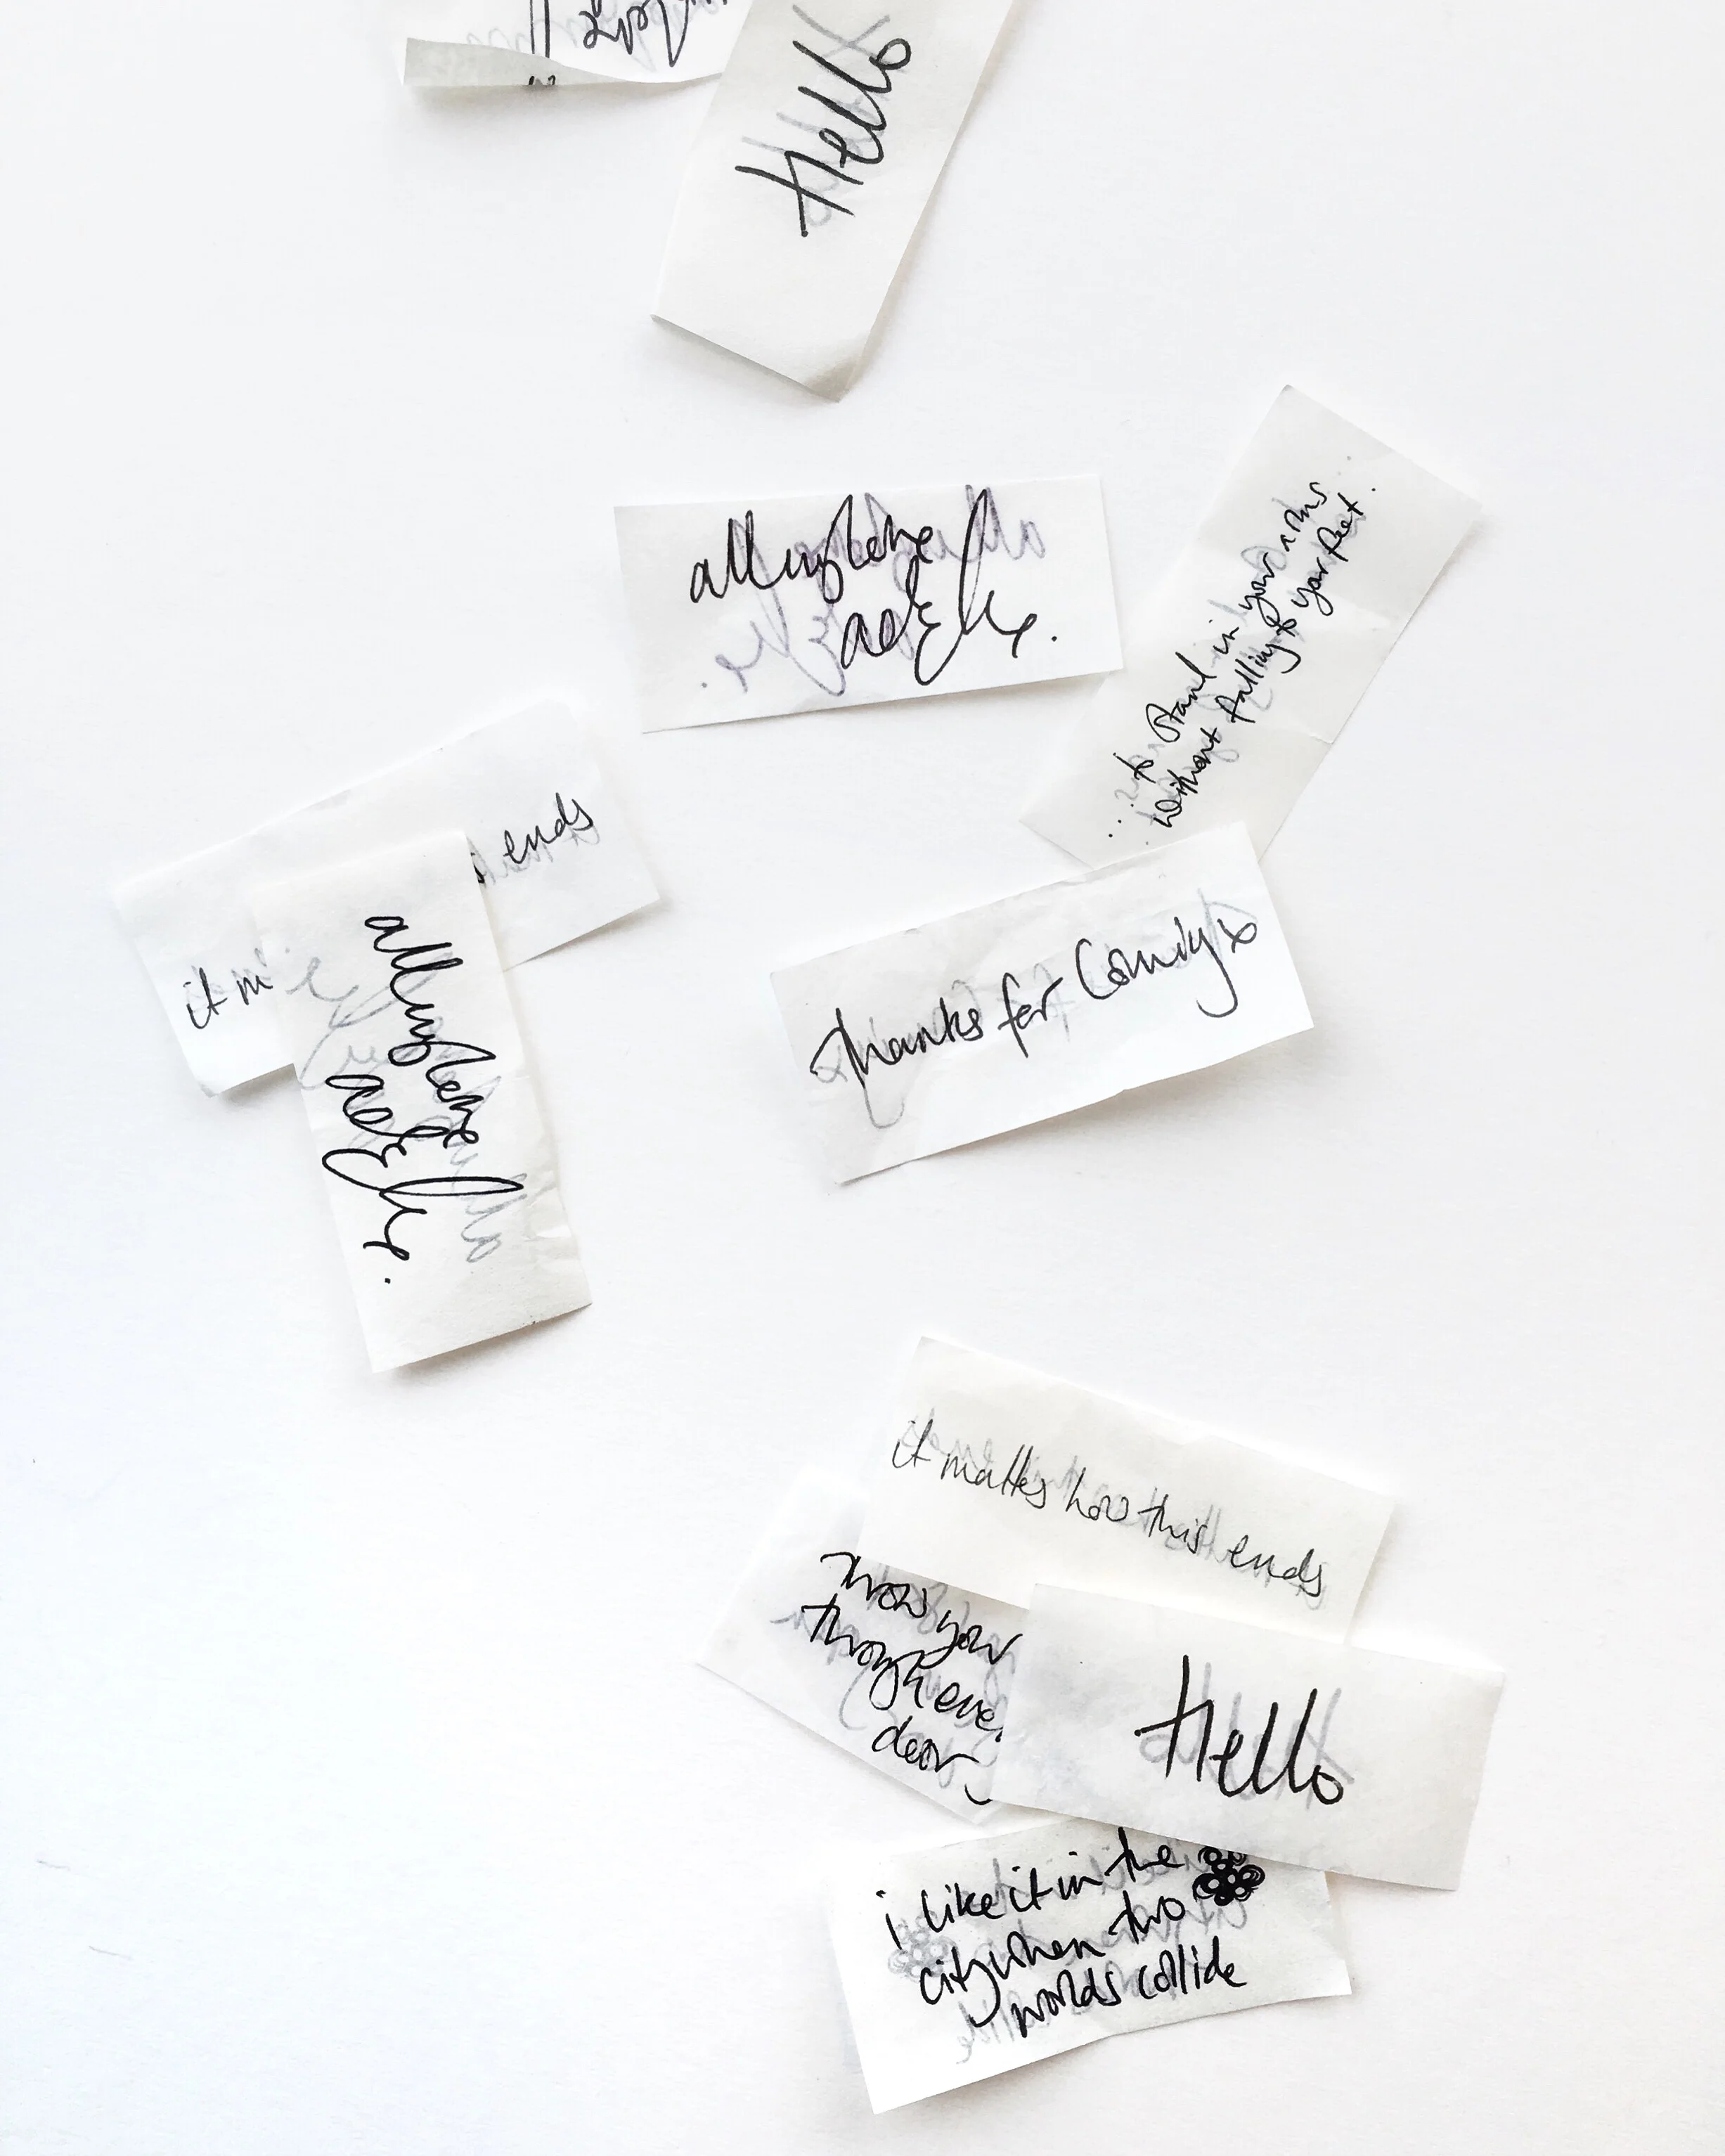 Hello
all my love
adele.
...to stand in your arms
without falling to your feet...
ends
it m
all my love
adele.
Thanks for Coming x
it matters how this ends
Throw your
through every
door
Hello
i like it in the
city when two
worlds collide